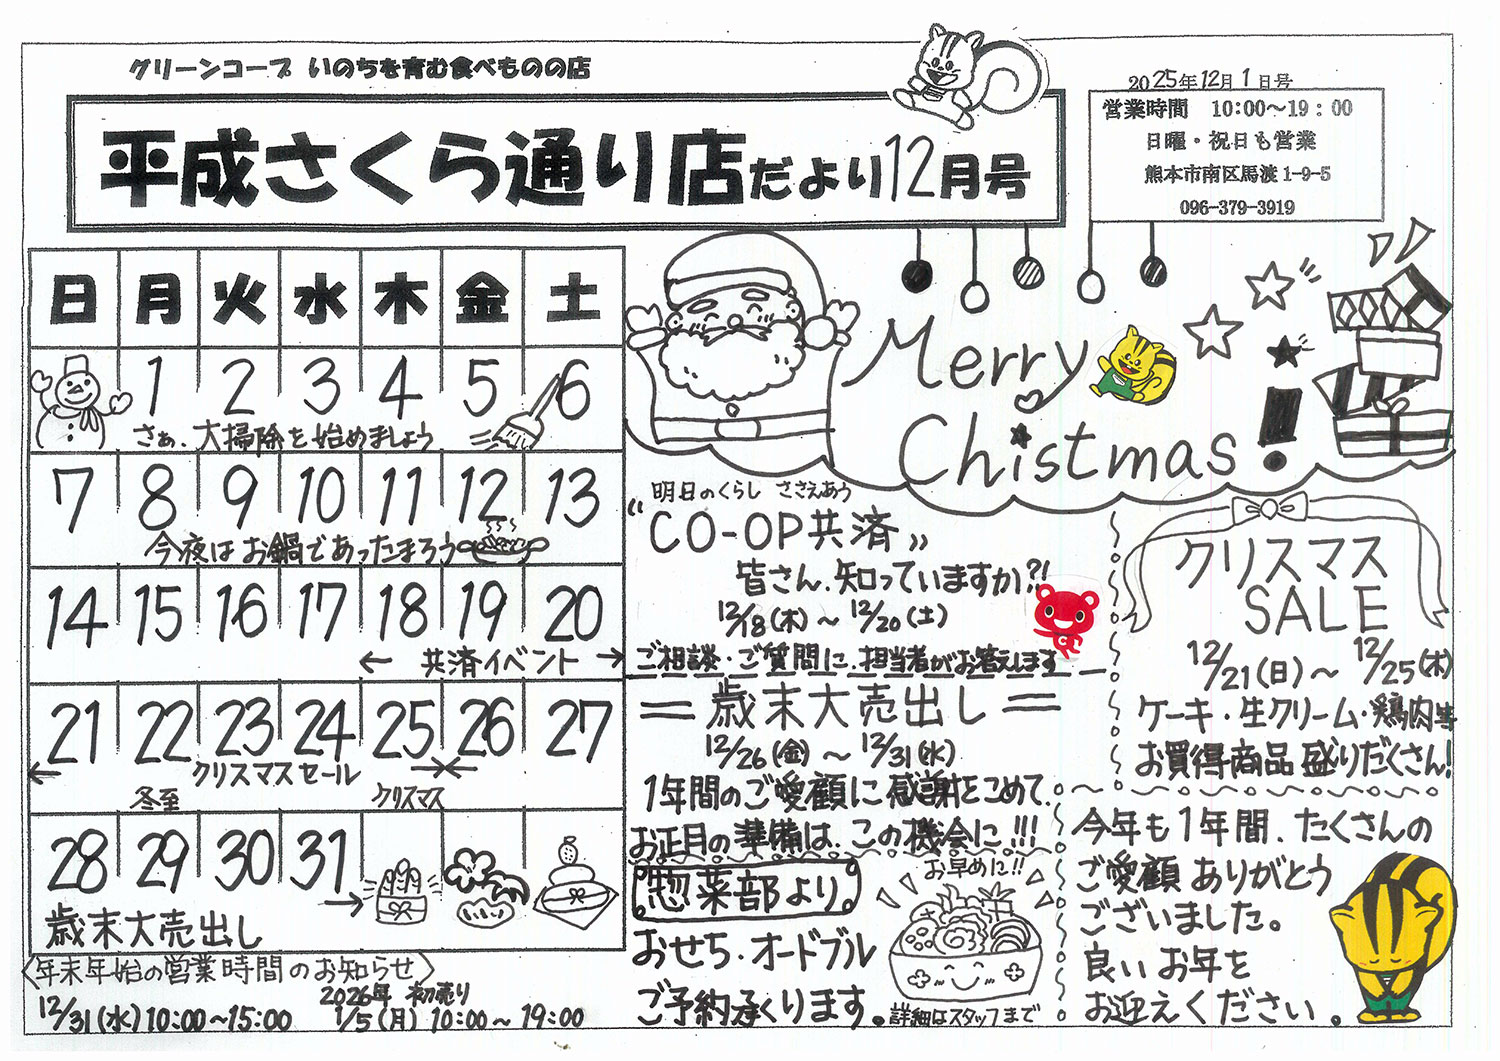 グリーンコープ いのちを育む食べものの店
平成さくら通り店だより12月号
2025年12月1日号
営業時間 10:00～19:00
日曜・祝日も営業
熊本市南区馬渡1-9-5
096-379-3919
日 月 火 水 木 金 土
1 2 3 4 5 6
さぁ、大掃除を始めましょう
7 8 9 10 11 12 13
今夜はお鍋であったまろう
14 15 16 17 18 19 20
← 共済イベント →
21 22 23 24 25 26 27
← クリスマスセール →←
冬至 クリスマス
28 29 30 31
→
歳末大売出し
〈年末年始の営業時間のお知らせ〉
2026年 初売り
12/31(水)10:00～15:00 1/5(月) 10:00～19:00
Merry
Christmas!
明日のくらし ささえあう
“CO-OP共済”
皆さん、知っていますか?!
12/18(木)～12/20(土)
ご相談・ご質問に、担当者がお答えします
＝歳末大売出し＝
12/26(金)～12/31(水)
1年間のご愛顧に感謝をこめて、
お正月の準備は、この機会に!!!
惣菜部より
おせち・オードブル
ご予約承くります。
お早めに!!
詳細はスタッフまで
クリスマス
SALE
12/21(日)～12/25(木)
ケーキ・生クリーム・鶏肉等
お買得商品盛りだくさん!
今年も1年間、たくさんの
ご愛顧ありがとう
ございました。
良いお年を
お迎えください。